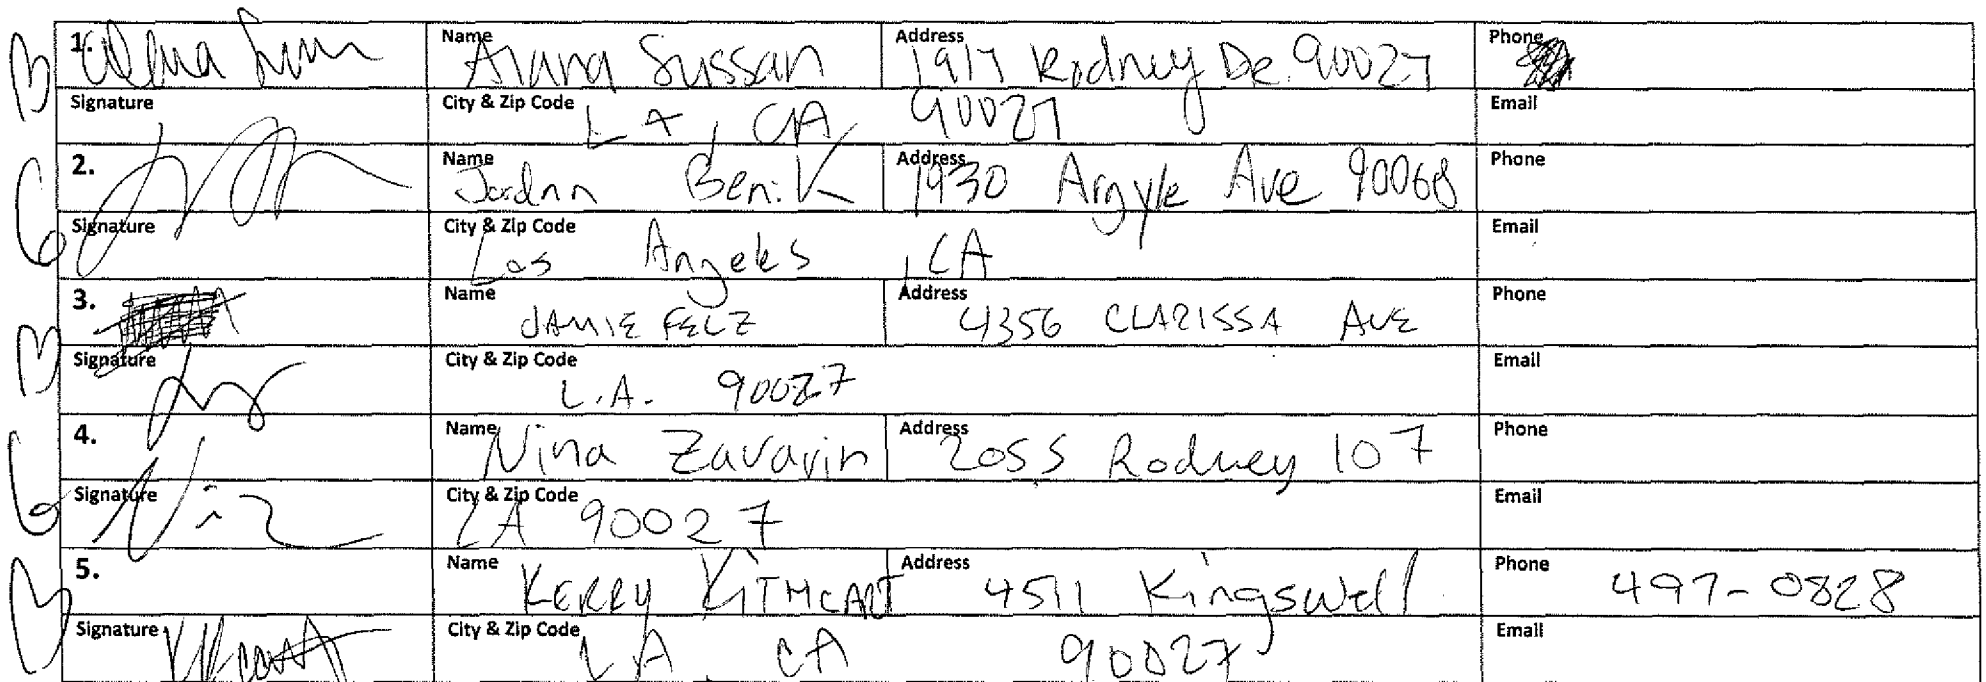 1. Name Alana Sussan Address 1917 Rodney Dr. 90027 Phone
Signature City & Zip Code LA, CA 90027 Email
2. Name Jordan Ben. K Address 1930 Argyle Ave 90068 Phone
Signature City & Zip Code Los Angeles, CA Email
3. Name JAMIE FELZ Address 4356 CLARISSA AVE Phone
Signature City & Zip Code L.A. 90027 Email
4. Name Nina Zavarin Address 2055 Rodney 107 Phone
Signature City & Zip Code LA 90027 Email
5. Name KERRY KITHCART Address 4511 Kingswell Phone 497-0828
Signature City & Zip Code LA, CA 90027 Email